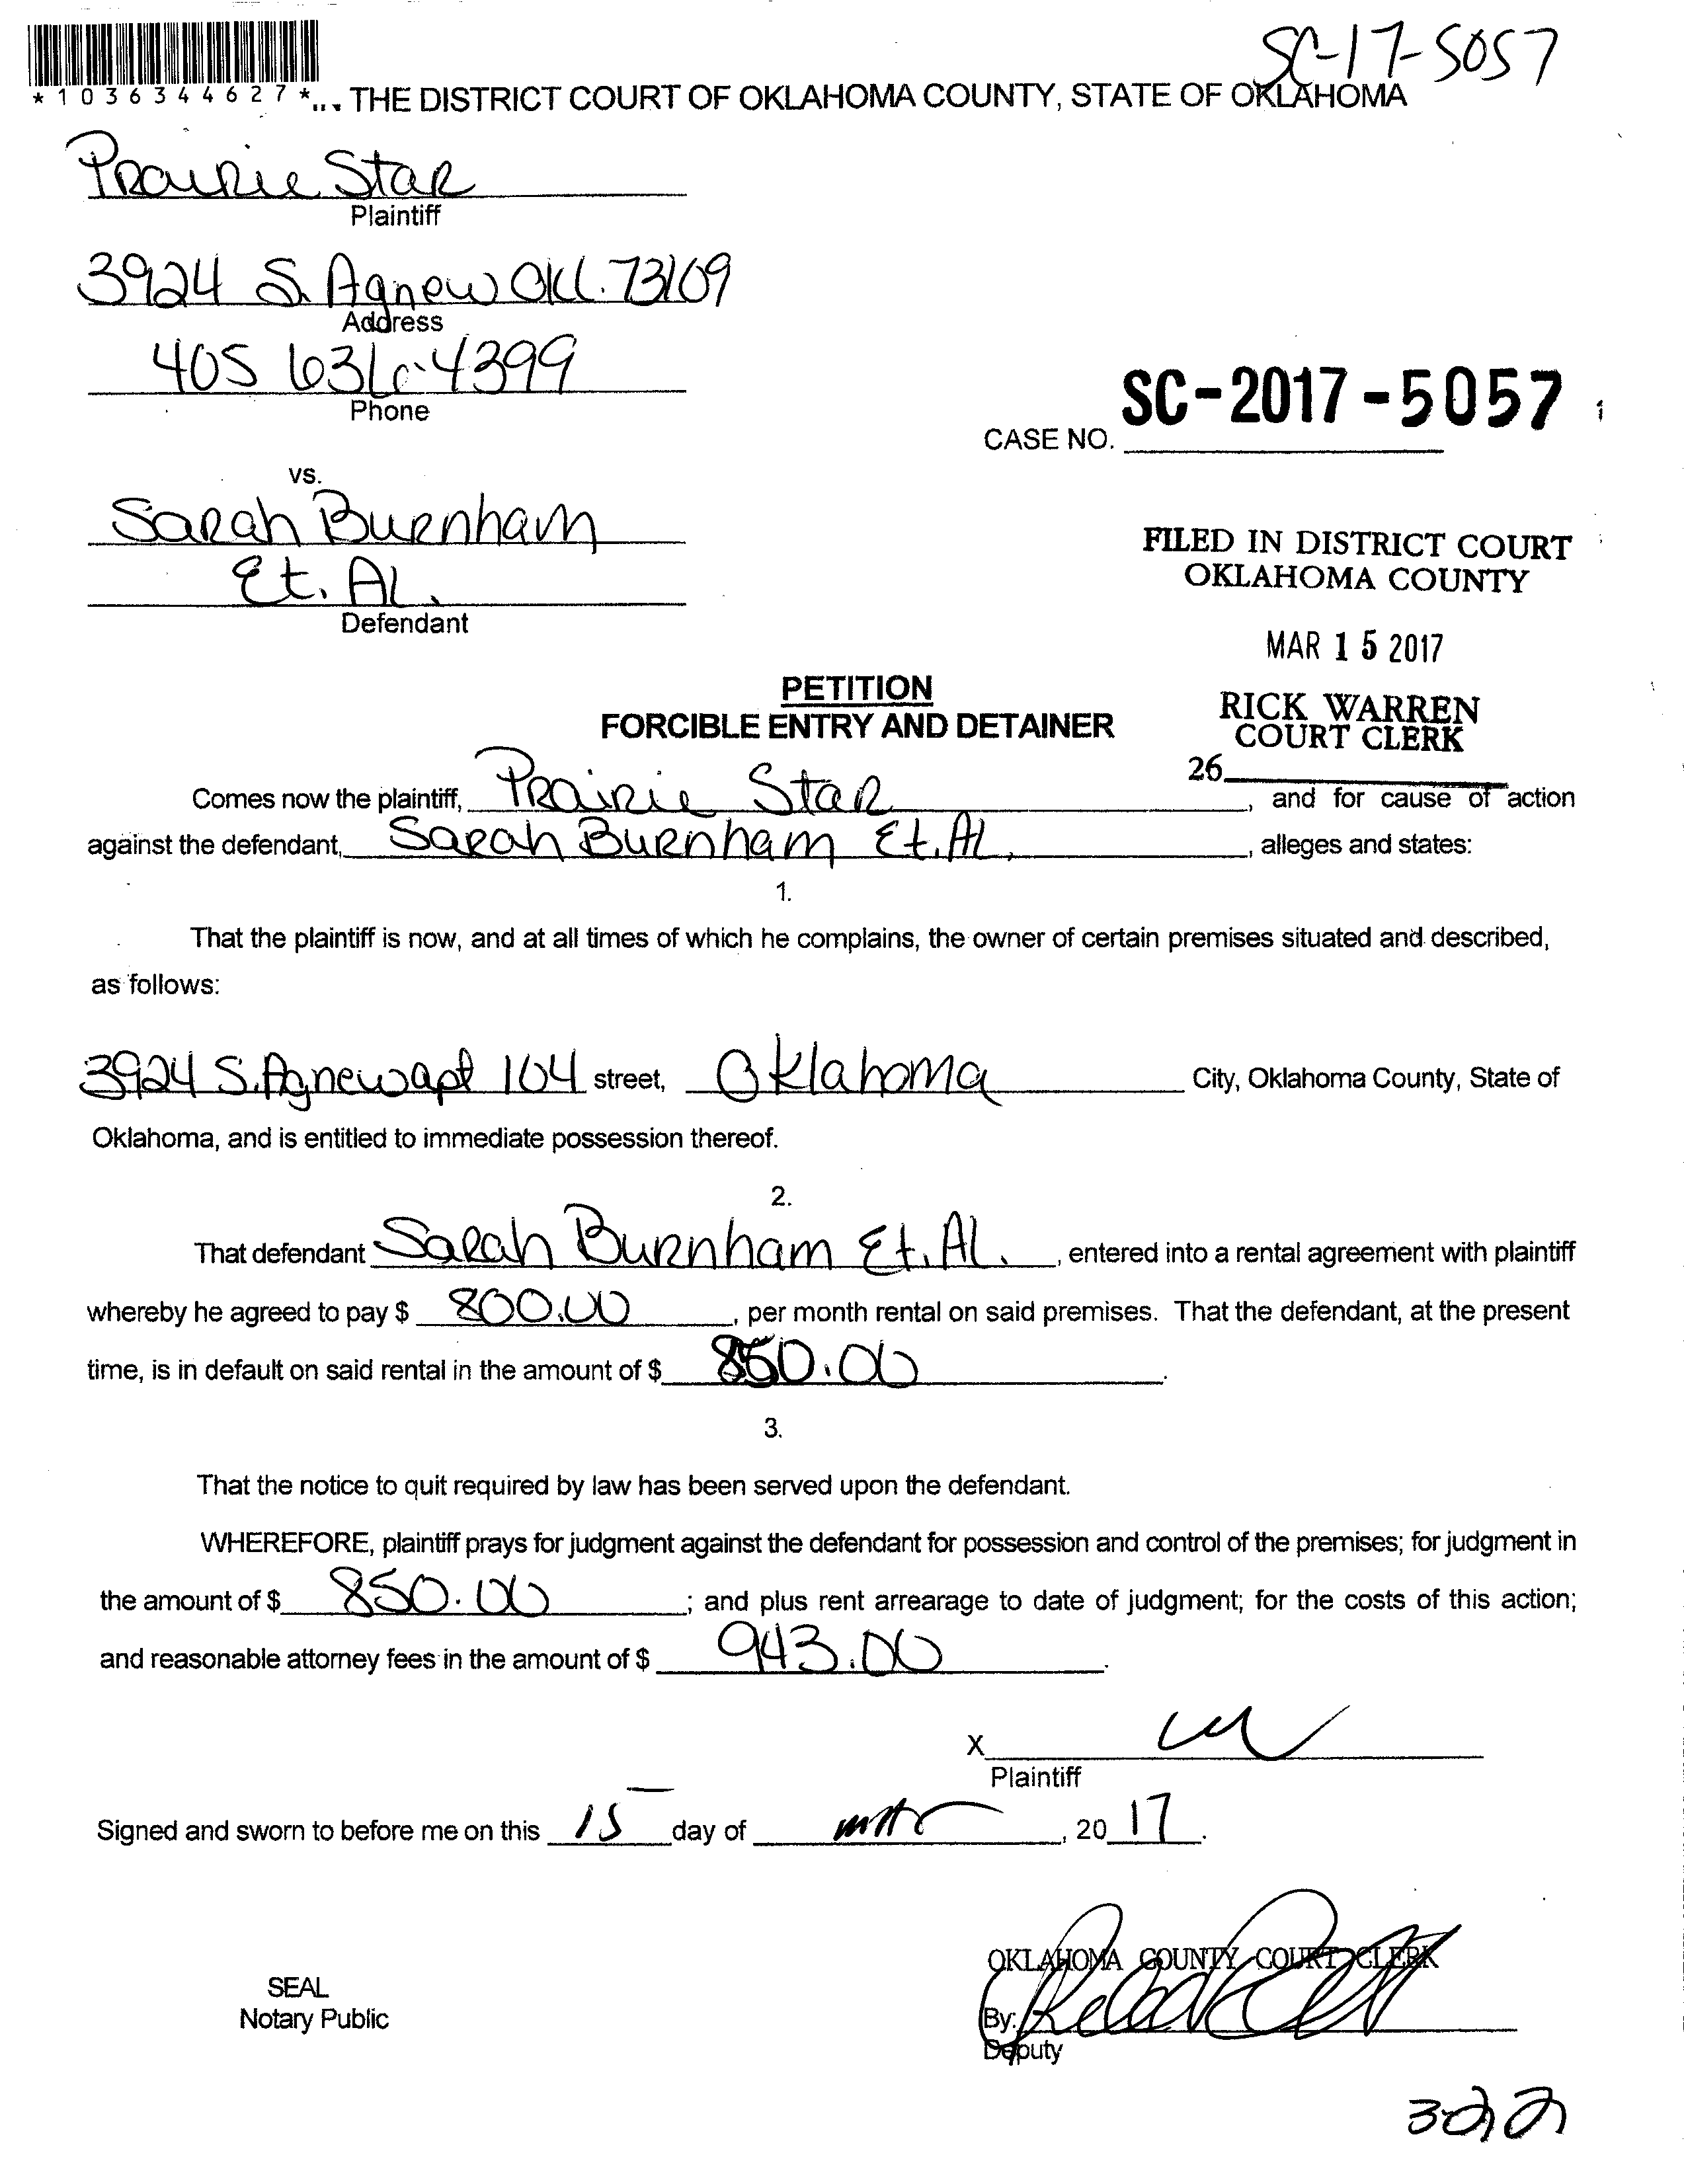 SC-17-5057
*1036344627*... THE DISTRICT COURT OF OKLAHOMA COUNTY, STATE OF OKLAHOMA
Prairie Star
Plaintiff
3924 S. Agnew Okl. 73109
Address
405 636-4399
Phone
SC-2017-5057
CASE NO.
vs.
Sarah Burnham
Et. Al.
Defendant
FILED IN DISTRICT COURT
OKLAHOMA COUNTY
MAR 15 2017
PETITION
FORCIBLE ENTRY AND DETAINER
RICK WARREN
COURT CLERK
26
Comes now the plaintiff, Prairie Star, and for cause of action
against the defendant, Sarah Burnham Et. Al., alleges and states:
1.
That the plaintiff is now, and at all times of which he complains, the owner of certain premises situated and described,
as follows:
3924 S. Agnew apt 104 street, Oklahoma City, Oklahoma County, State of
Oklahoma, and is entitled to immediate possession thereof.
2.
That defendant Sarah Burnham Et. Al., entered into a rental agreement with plaintiff
whereby he agreed to pay $ 800.00, per month rental on said premises. That the defendant, at the present
time, is in default on said rental in the amount of $ 850.00.
3.
That the notice to quit required by law has been served upon the defendant.
WHEREFORE, plaintiff prays for judgment against the defendant for possession and control of the premises; for judgment in
the amount of $ 850.00; and plus rent arrearage to date of judgment; for the costs of this action;
and reasonable attorney fees in the amount of $ 943.00.
X
Plaintiff
Signed and sworn to before me on this 15 day of mar, 2017.
OKLAHOMA COUNTY COURT CLERK
SEAL
Notary Public
By:
Deputy